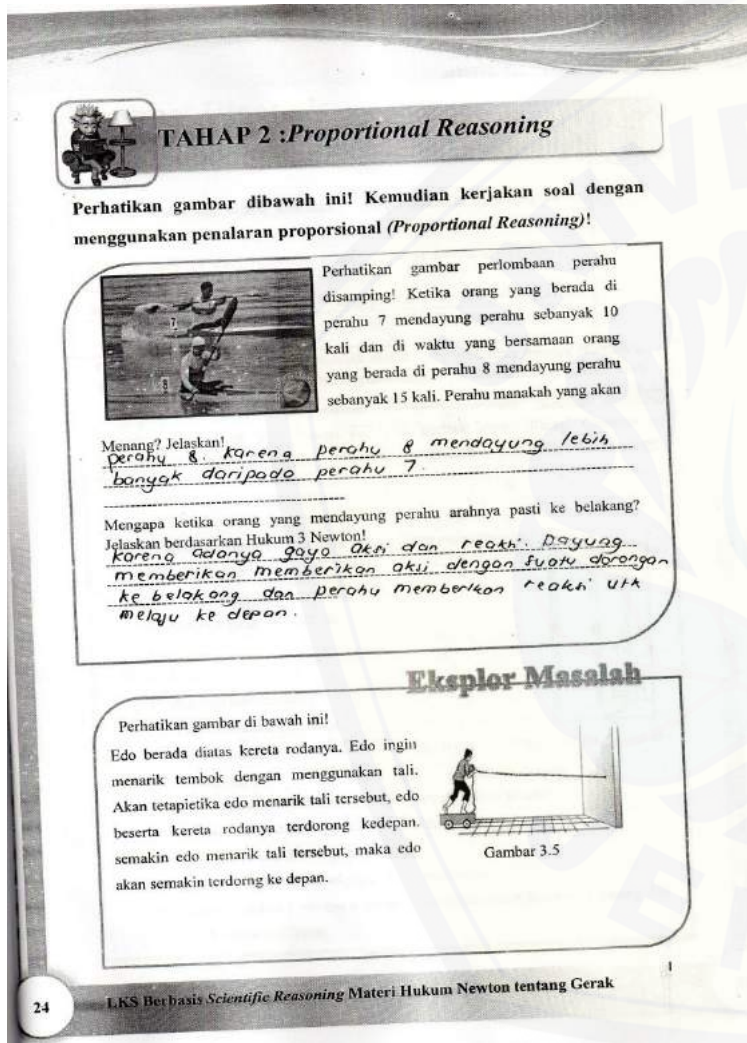 TAHAP 2 :Proportional Reasoning
Perhatikan gambar dibawah ini! Kemudian kerjakan soal dengan
menggunakan penalaran proporsional (Proportional Reasoning)!
7
8
Perhatikan gambar perlombaan perahu
disamping! Ketika orang yang berada di
perahu 7 mendayung perahu sebanyak 10
kali dan di waktu yang bersamaan orang
yang berada di perahu 8 mendayung perahu
sebanyak 15 kali. Perahu manakah yang akan
Menang? Jelaskan!
perahu 8. karena perahu 8 mendayung lebih
banyak daripada perahu 7.
Mengapa ketika orang yang mendayung perahu arahnya pasti ke belakang?
Jelaskan berdasarkan Hukum 3 Newton!
karena adanya gaya aksi dan reaksi. Dayung
memberikan memberikan aksi dengan suatu dorongan
ke belakang dan perahu memberikan reaksi utk
melaju ke depan.
Eksplor Masalah
Perhatikan gambar di bawah ini!
Edo berada diatas kereta rodanya. Edo ingin
menarik tembok dengan menggunakan tali.
Akan tetapietika edo menarik tali tersebut, edo
beserta kereta rodanya terdorong kedepan.
semakin edo menarik tali tersebut, maka edo
akan semakin terdorng ke depan.
Gambar 3.5
24
LKS Berbasis Scientific Reasoning Materi Hukum Newton tentang Gerak